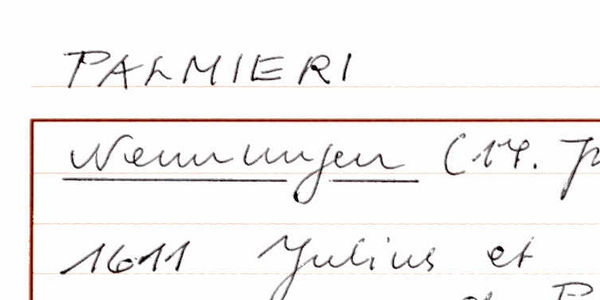 PALMIERI
Nennungen (17. J
1611 Julius et